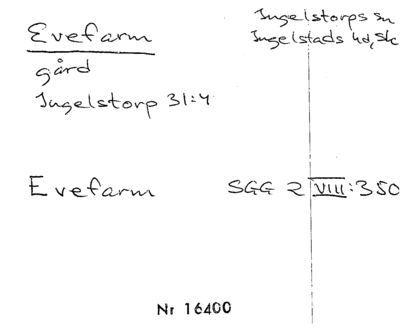 Evefarm
Ingelstorps sn
Ingelstads hd, Sk
gård
Ingelstorp 31:4
Evefarm
SGG 2 VIII:350
Nr 16400